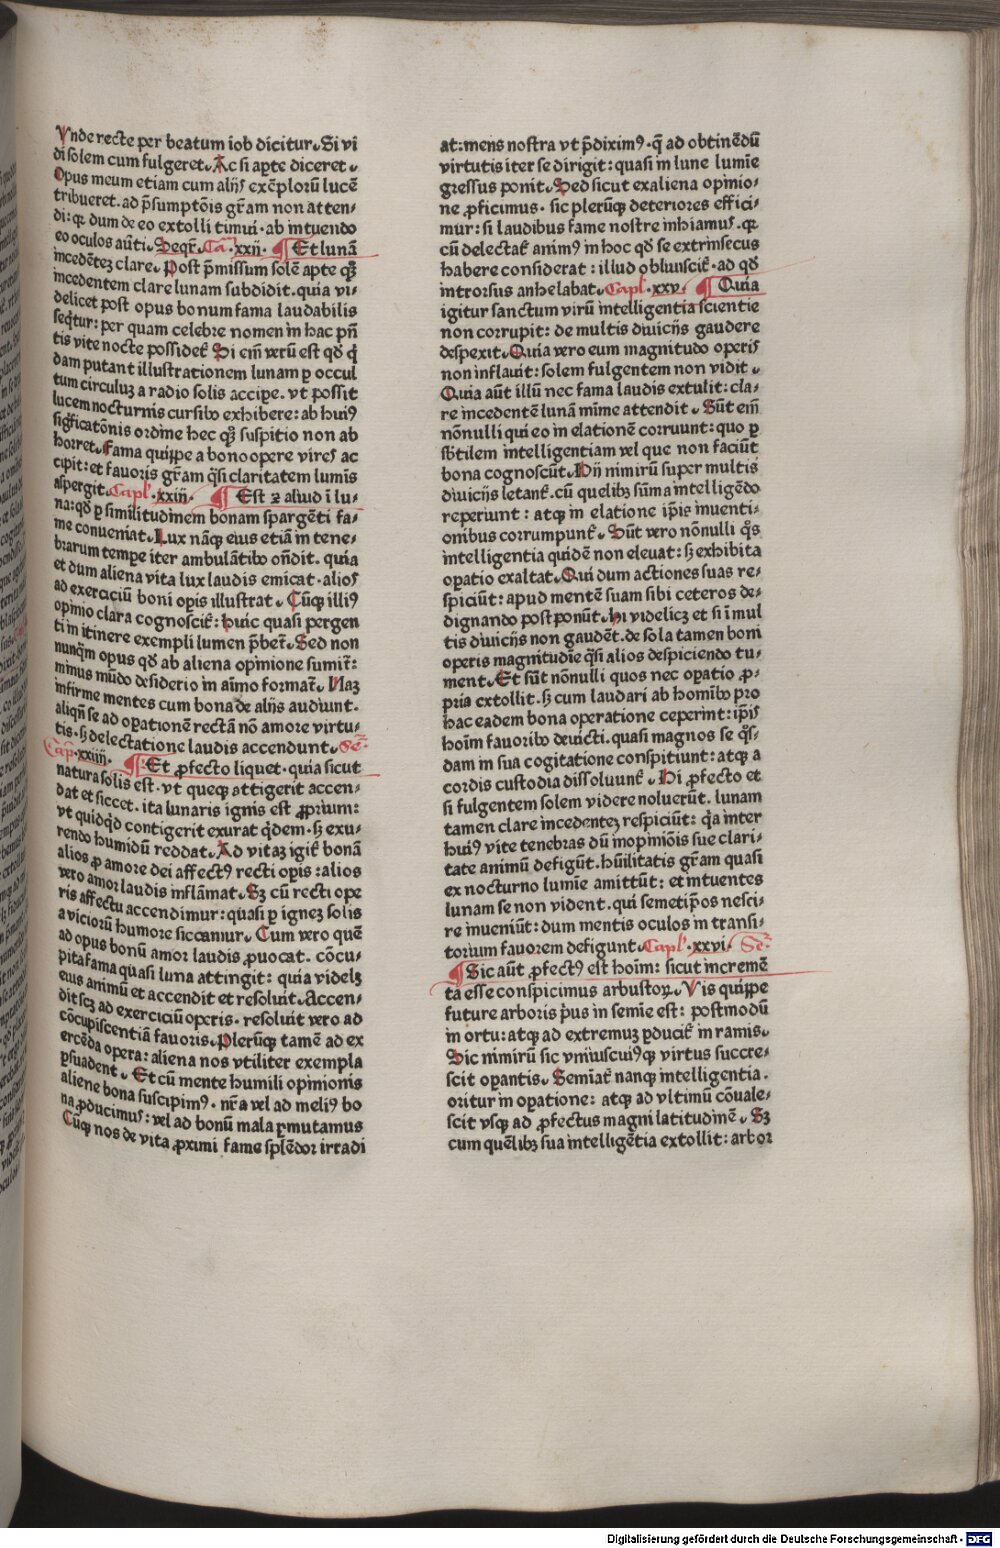 Vnde recte per beatum iob dicitur. Si vi
di solem cum fulgeret. Ac si apte diceret.
Opus meum etiam cum alijs exēplorū lucē
tribueret. ad p̄sumptōis gr̄am non atten-
di: qꝛ dum de eo extolli timui. ab intuendo
eo oculos auti. Seqr̄. Ca. xxij. ¶ Et lunā
incedētez clare. Post p̄missum solē apte qꝫ
incedentem clare lunam subdidit. quia vi-
delicet post opus bonum fama laudabilis
seqtur: per quam celebre nomen in hac pn̄
tis vite nocte possidet᷑. Hi em̄ verū est qd̄ q̄
dam putant illustrationem lunam ꝑ occul
tum circuluz a radio solis accipe. vt possit
lucem nocturnis cursibꝰ exhibere: ab huiꝰ
significatōnis ordine hec qꝫ suspitio non ab
horret. Fama quippe a bono opere vires ac
cipit: et fauoris gr̄am q̄si claritatem lumis
aspergit. Capl. xxiij. ¶ Est ⁊ aliud ī lu-
na: qd̄ ꝑ similitudinem bonam spargēti fa-
me conueniat. Lux nāqꝫ eius etiā in tene-
brarum tempe iter ambulātibꝰ on̄dit. quia
et dum aliena vita lux laudis emicat. alios
ad exerciciū boni opis illustrat. Cūqꝫ illiꝰ
opinio clara cognoscit᷑: huic quasi pergen
ti in itinere exempli lumen p̄bet᷑. Sed non
nunqm̄ opus qd̄ ab aliena opinione sumit᷑:
minus mūdo desiderio in aīmo format᷑. Naz
infirme mentes cum bona de alijs audiunt.
aliqn̄ se ad oꝑationē rectā nō amore virtu-
tis. sꝫ delectatione laudis accendunt. Se.
Cap. xxiiij. ¶ Et ꝓfecto liquet. quia sicut
natura solis est. vt queqꝫ attigerit accen-
dat et siccet. ita lunaris ignis est ꝓprium:
vt quidqd̄ contigerit exurat qdem. sꝫ exu-
rendo humidū reddat. Ad vitaz igit᷑ bonā
alios ꝓ amore dei affectꝰ recti opis: alios
vero amor laudis inflāmat. Sꝫ cū recti ope
ris affectu accendimur: quasi ꝑ ignez solis
a viciorū humore siccamur. Cum vero quē
ad opus bonū amor laudis ꝓuocat. cōcu-
pita fama quasi luna attingit: quia videlꝫ
eius animū et accendit et resoluit. Accen-
dit scꝫ ad exerciciū operis. resoluit vero ad
cōcupiscentiā fauoris. Plerūqꝫ tamē ad ex
ercēda opera: aliena nos vtiliter exempla
ꝑsuadent. Et cū mente humili opinionis
aliene bona suscipimꝰ. nr̄a vel ad meliꝰ bo
na ꝓducimus: vel ad bonū mala ꝑmutamus
Cūqꝫ nos de vita ꝓximi fame splēdor irradi
at: mens nostra vt p̄diximꝰ. q̄ ad obtinēdū
virtutis iter se dirigit: quasi in lune lumīe
gressus ponit. Sed sicut ex aliena opinio-
ne ꝓficimus. sic plerūqꝫ deteriores effici-
mur: si laudibus fame nostre inhiamus. qꝛ
cū delectat᷑ animꝰ in hoc qd̄ se extrinsecus
habere considerat: illud obliuiscit᷑. ad qd̄
introrsus anhelabat. Capl. xxv. ¶ Quia
igitur sanctum virū intelligentia scientie
non corrupit: de multis diuicijs gaudere
despexit. Quia vero eum magnitudo operis
non inflauit: solem fulgentem non vidit.
Quia aūt illū nec fama laudis extulit: cla-
re incedentē lunā mīme attendit. Sūt em̄
nōnulli qui eo in elationē corruunt: quo ꝑ
sbtilem intelligentiam vel que non faciūt
bona cognoscūt. Hij nimirū super multis
diuicijs letant᷑. cū quelibꝫ sūma intelligēdo
reperiunt: atqꝫ in elatione ip̄is inuenti-
onibus corrumpunt᷑. Sūt vero nōnulli q̄s
intelligentia quidē non eleuat: sꝫ exhibita
oꝑatio exaltat. Qui dum actiones suas re-
spiciūt: apud mentē suam sibi ceteros de-
dignando postponūt. Hi videlicꝫ et si ī mul
tis diuicijs non gaudēt. de sola tamen boni
operis magnitudīe q̄si alios despiciendo tu-
ment. Et sūt nōnulli quos nec oꝑatio ꝓ-
pria extollit. sꝫ cum laudari ab homībꝰ pro
hac eadem bona operatione ceperint: ip̄is
hoīm fauoribꝰ deuicti. quasi magnos se q̄s-
dam in sua cogitatione conspitiunt: atqꝫ a
cordis custodia dissoluunt᷑. Hi ꝓfecto et
si fulgentem solem videre noluerūt. lunam
tamen clare incedentez respiciūt: qꝛ inter
huiꝰ vite tenebras dū in opiniōis sue clari-
tate animū defigūt. hūilitatis gr̄am quasi
ex nocturno lumīe amittūt: et intuentes
lunam se non vident. qui semetip̄os nesci-
re inueniūt: dum mentis oculos in transi-
torium fauorem defigunt. Capl. xxvi. Se.
¶ Sic aūt ꝓfectꝰ est hoīm: sicut incremē
ta esse conspicimus arbustoꝝ. Vis quippe
future arboris pꝰus in semīe est: postmodū
in ortu: atqꝫ ad extremuz ꝑducit᷑ in ramis.
Sic nimirū sic vniuscuiꝰqꝫ virtus succre-
scit oꝑantis. Semīat᷑ nanqꝫ intelligentia.
oritur in oꝑatione: atqꝫ ad vltimū cōuale-
scit vsqꝫ ad ꝓfectus magni latitudinē. Sꝫ
cum quēlibꝫ sua intelligētia extollit: arbor
Digitalisierung gefördert durch die Deutsche Forschungsgemeinschaft - DFG